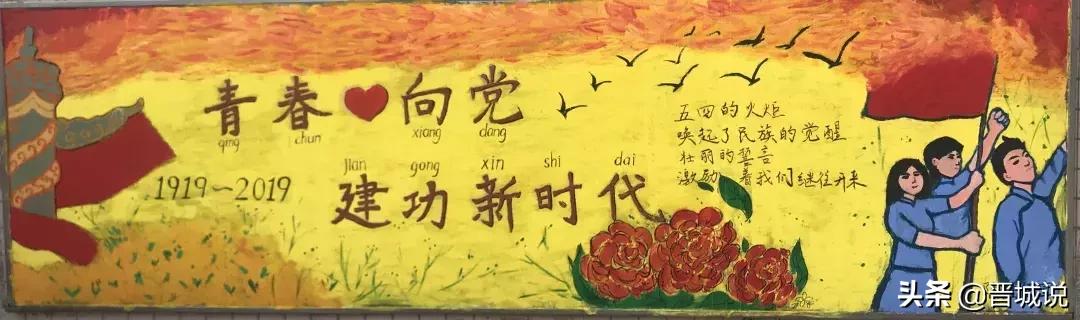 青春❤向党
qing chun xiang dang
jian gong xin shi dai
建功新时代
1919～2019
五四的火炬
唤起了民族的觉醒
壮丽的誓言
激励着我们继往开来
头条 @晋城说